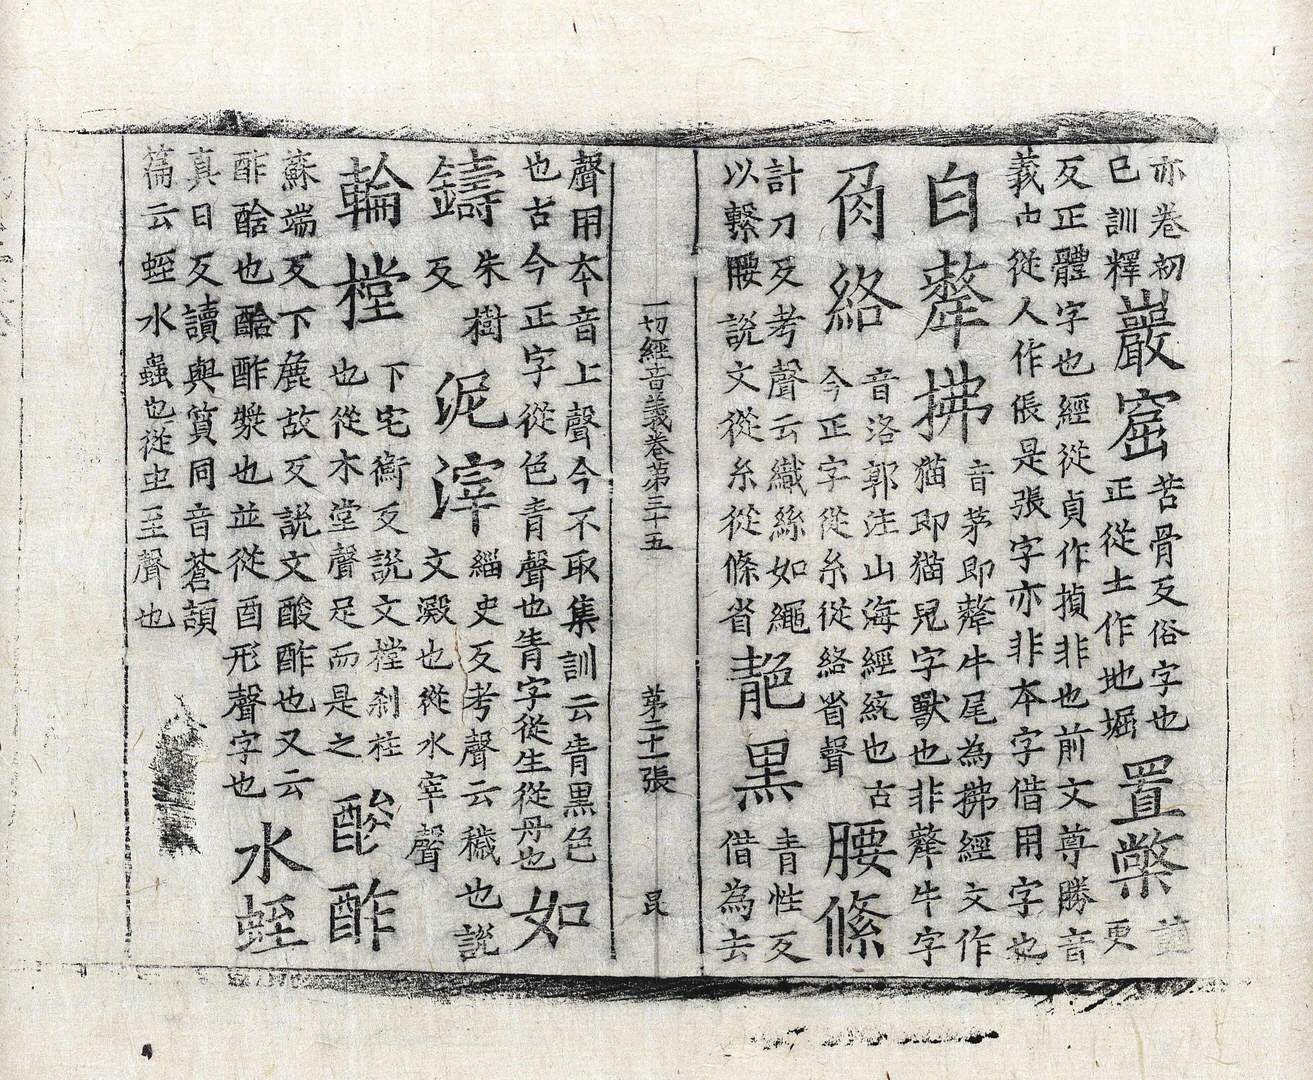 亦卷初
已訓釋
巖窟
苦骨反俗字也
正從土作地堀
置檠
更
反正體字也經從貞作揁非也前文尊勝音
義㔾從人作倀是張字亦非本字借用字也
白犛拂
音茅即犛牛尾為拂經文作
猫即猫兒字獸也非犛牛字
絡
音洛郭注山海經絃也古
今正字從糸從絡省聲
腰絛
計刀反考聲云織絲如繩
以繫腰説文從糸從條省
靘黑
青性反
借為去
一切經音義卷第三十五 第二十一張 昆
聲用本音上聲今不取集訓云青黑色
也古今正字從色青聲也靑字從生從丹也
如
鑄
朱樹
反
泥滓
緇史反考聲云穢也説
文澱也從水宰聲
輪樘
下宅衡反説文樘刹柱
也從木堂聲足而是之
酸酢
蘇端反下麁故反説文酸酢也又云
酢酪也酪酢漿也並從酉形聲字也
水蛭
真日反讀與質同音蒼頡
篇云蛭水蟲也從虫至聲也